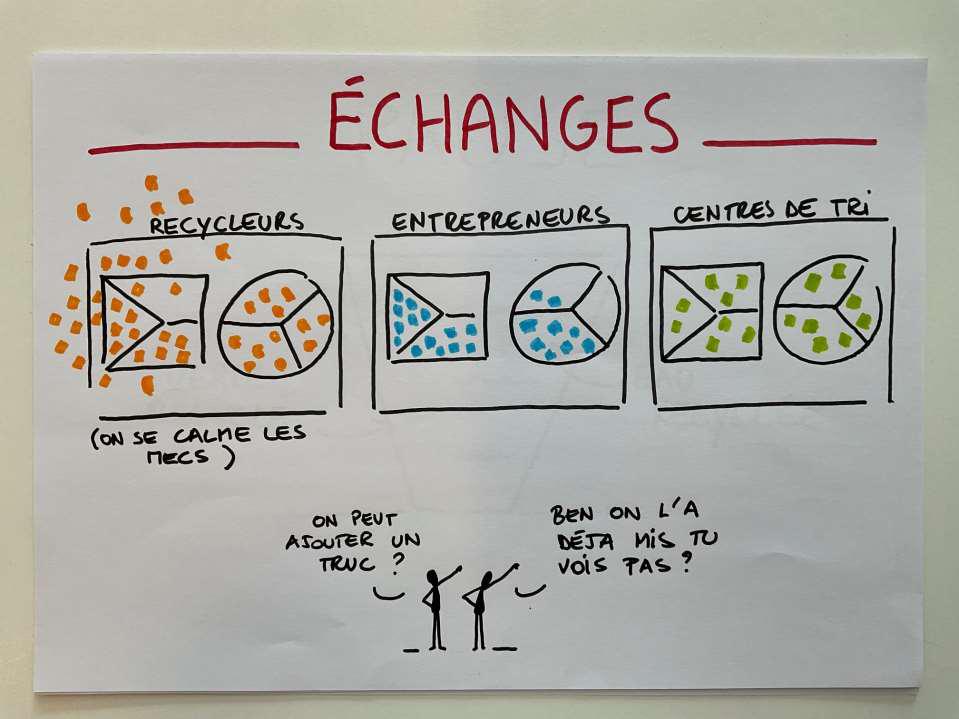 ÉCHANGES
RECYCLEURS
ENTREPRENEURS
CENTRES DE TRI
(ON SE CALME LES
MECS)
ON PEUT
AJOUTER UN
TRUC ?
BEN ON L'A
DÉJA MIS TU
VOIS PAS ?